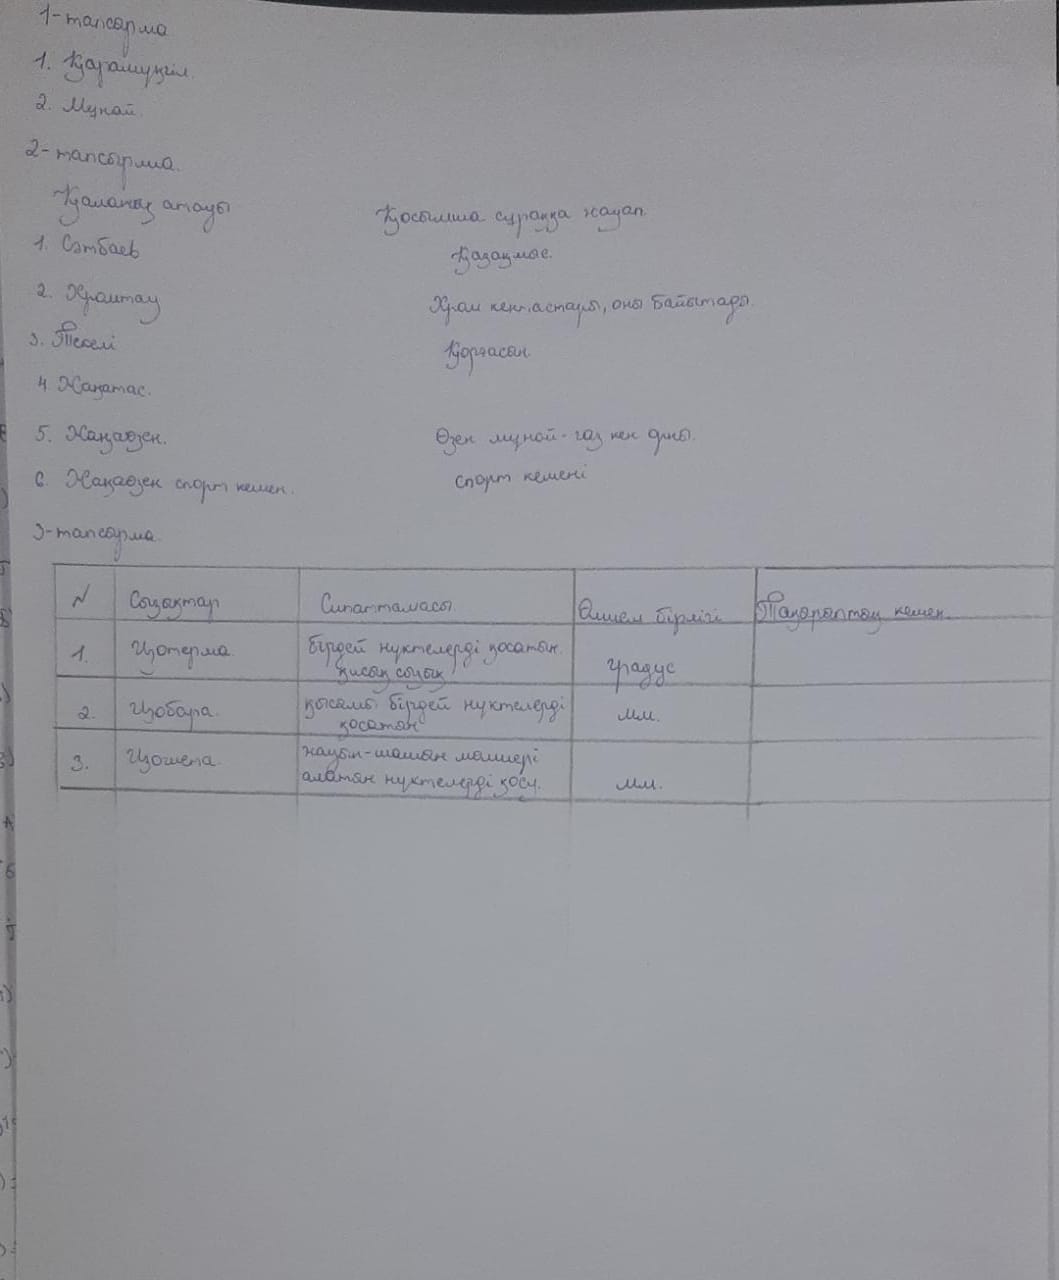 1-тапсырма
1. Қарамүкгіл.
2. Мұнай.
2-тапсырма.
Қаланың атауы Қосымша сұраққа жауап
1. Сәтбаев Қазақмыс.
2. Хромтау Хром кен.астары, оны байытады.
3. Текелі Қорғасын
4 Жаңатас.
5. Жаңаөзен. Өзен мұнай-газ кен орны.
6. Жаңаөзен спорт кешен. спорт кешені
3-тапсырма
N Сызықтар Сипаттамасы Өлшем бірлігі Тақырыптық кешен
1. Изотерма бірдей нүктелерді қосатын. градус
қисық сызық
2. Изобара. қысымы бірдей нүктелерді мм.
қосатын
3. Изошепа жауын-шашын мөлшері мм.
алатын нүктелерді қосу.